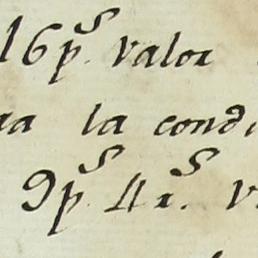 16pˢ. valor
la condi
9pˢ. 4rˢ. V